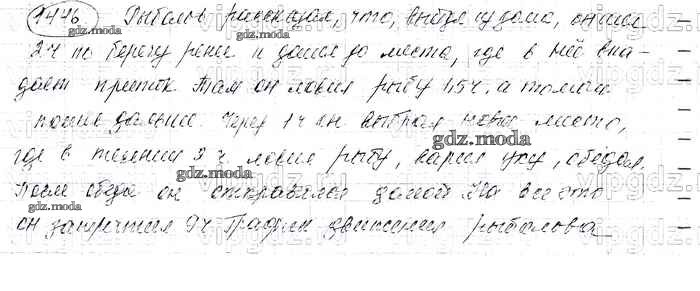 1446 Рыболов рассказал, что, выйдя из дома, он шел
gdz.moda
2 ч по берегу реки и дошел до места, где в неё впа-
дает приток. Там он ловил рыбу 1,5 ч, а потом
gdz.moda
пошел дальше. Через 1 ч он выбрал новое место,
gdz.moda
где в течении 3 ч ловил рыбу, варил уху, обедал.
gdz.moda
После обеда он отправился домой. На все это
gdz.moda
он затратил 9 ч. График движения рыболова